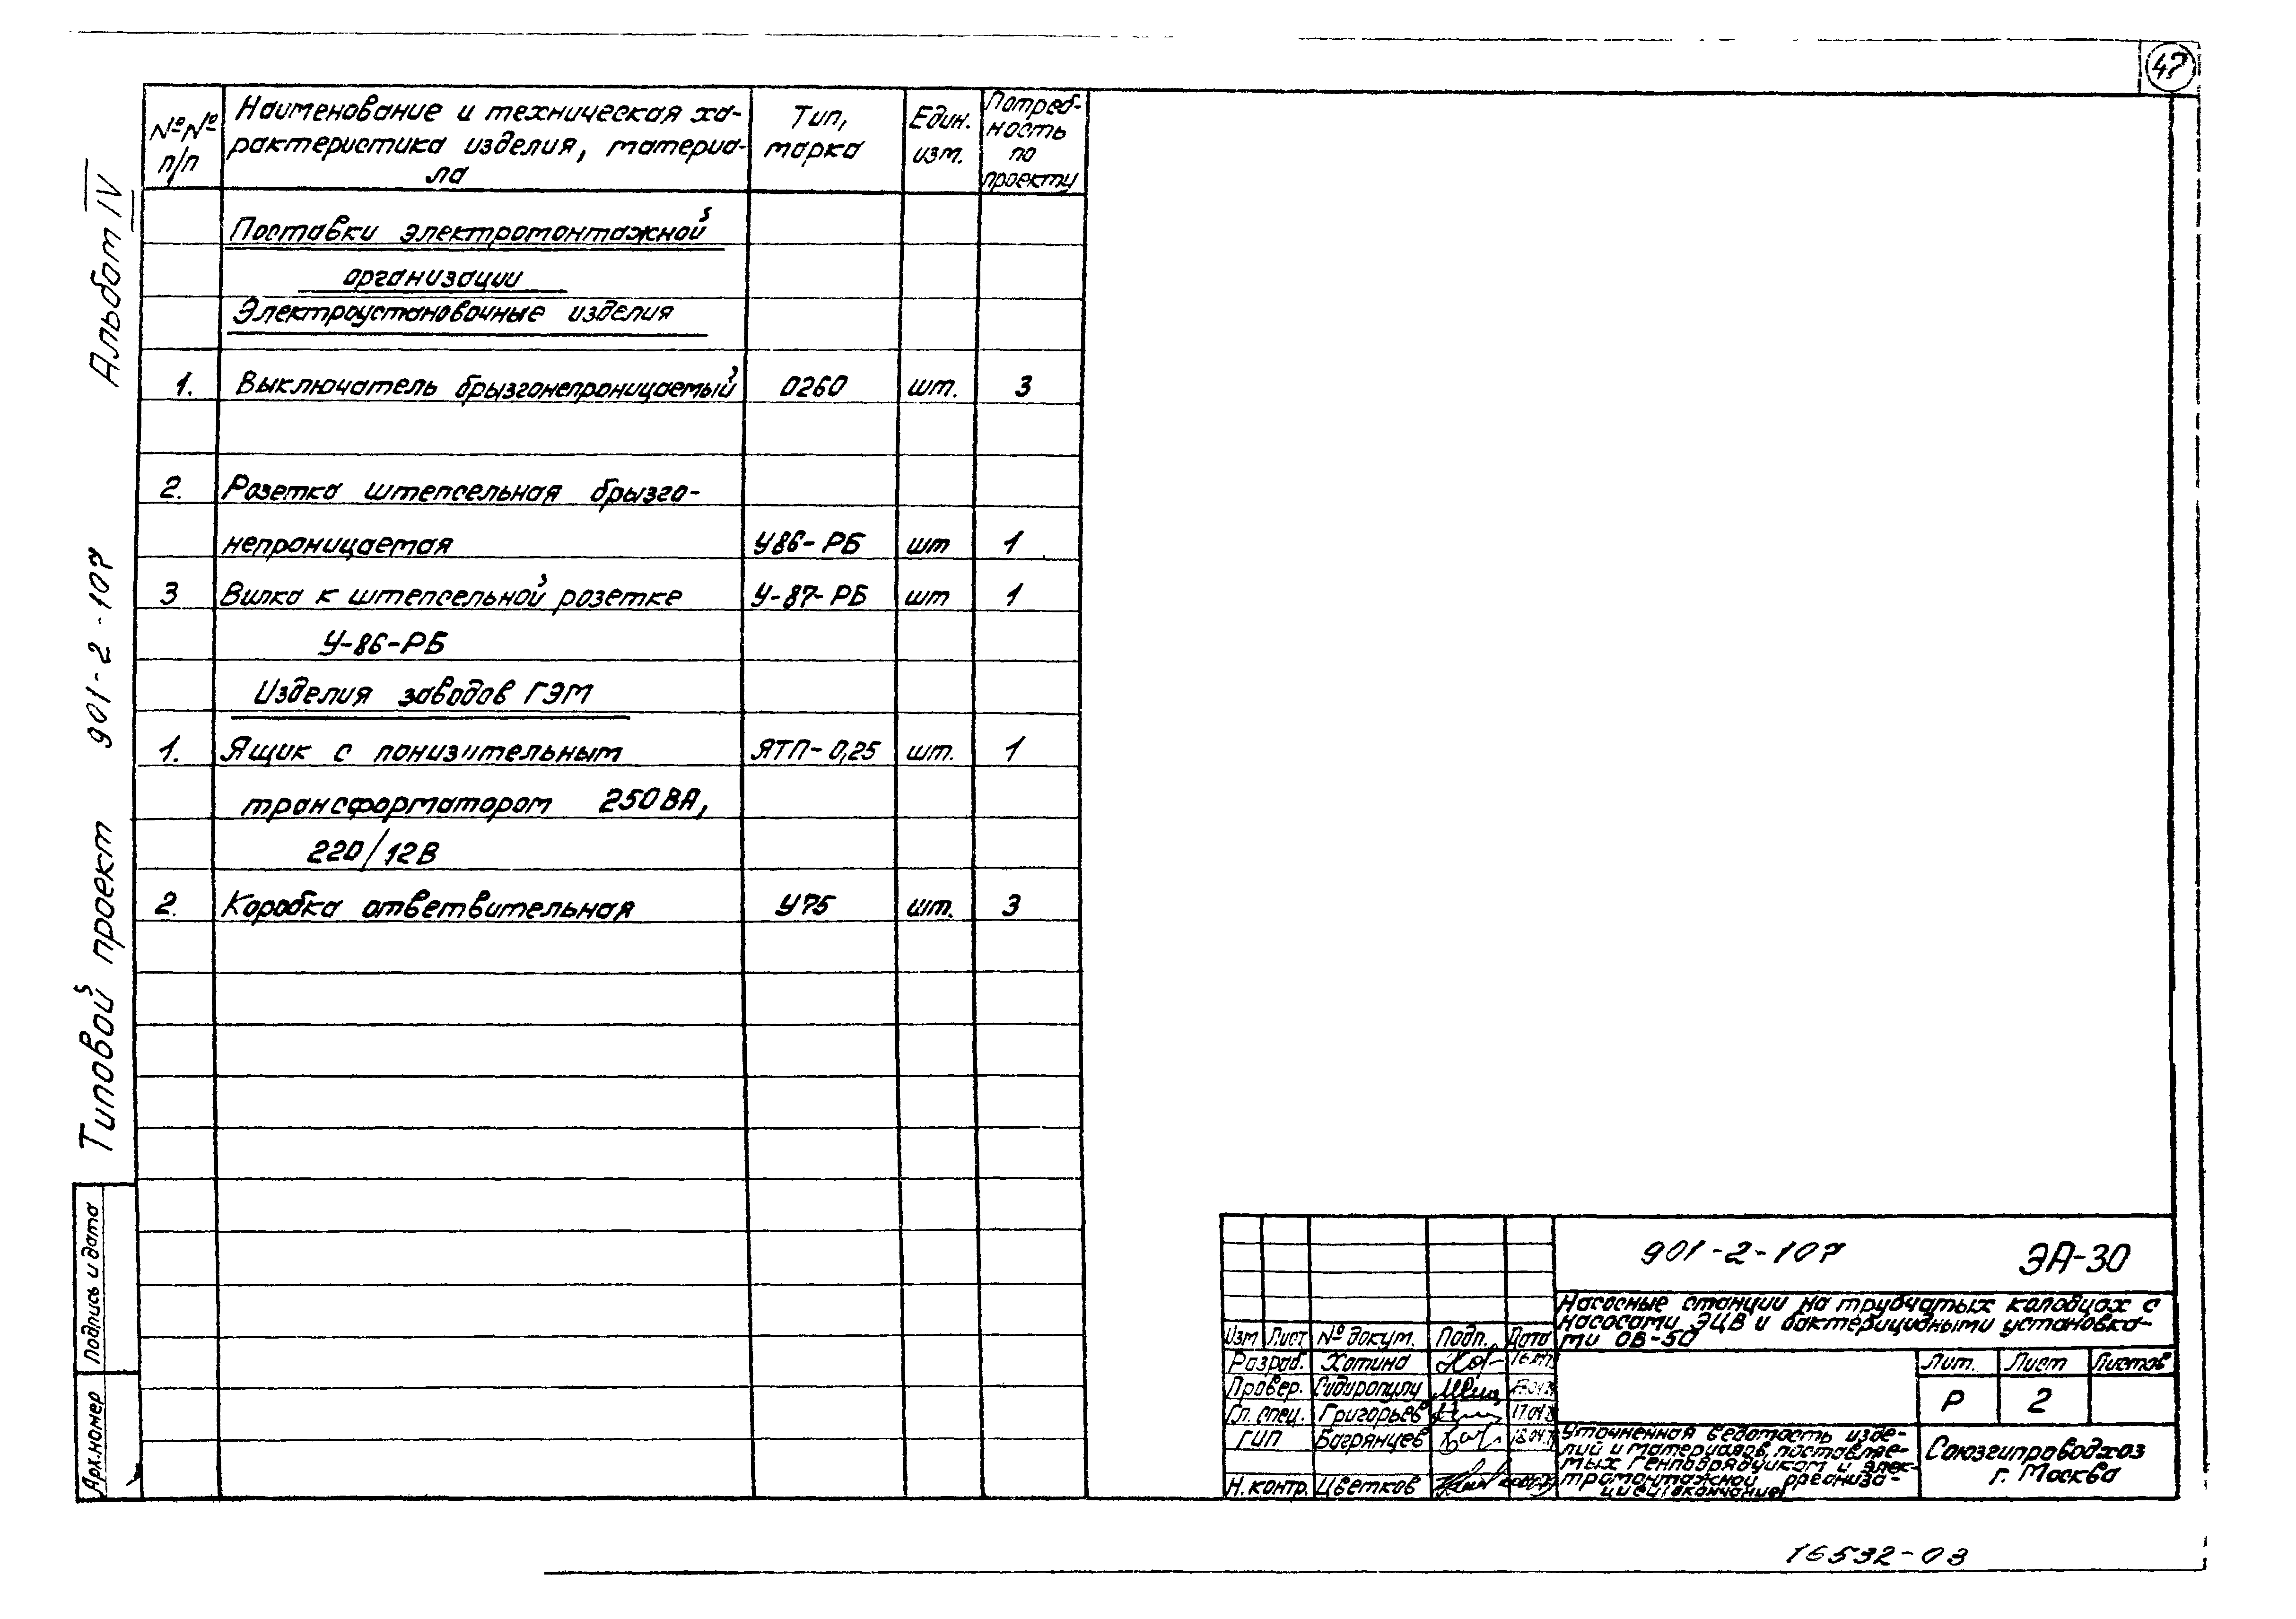 47
№№ п/п
Наименование и техническая ха-
рактеристика изделия, материа-
ла
Тип,
марка
Един.
изм.
Потреб-
ность
по
проекту
Поставки электромонтажной
организации
Электроустановочные изделия
1. Выключатель брызгонепроницаемый 0260 шт. 3
2. Розетка штепсельная брызго-
непроницаемая У86-РБ шт 1
3 Вилка к штепсельной розетке У-87-РБ шт 1
У-86-РБ
Изделия заводов ГЭМ
1. Ящик с понизительным ЯТП-0,25 шт. 1
трансформатором 250ВА,
220/12В
2. Коробка ответвительная У75 шт. 3
Типовой проект 901-2-107 Альбом IV
Подпись и дата
Арх.номер
901-2-107 ЭА-30
Насосные станции на трубчатых колодцах с
насосами ЭЦВ и бактерицидными установка-
ми ОВ-50
Изм Лист № докум. Подп. Дата
Разраб. Хотина
Провер. Сидиропулу
Гл. спец. Григорьев
ГИП Багрянцев
Н. контр. Цветков
Лит. Лист Листов
Р 2
Уточненная ведомость изде-
лий и материалов, поставляе-
мых генподрядчиком и элек-
тромонтажной организа-
цией (окончание)
Союзгипроводхоз
г. Москва
16532-03